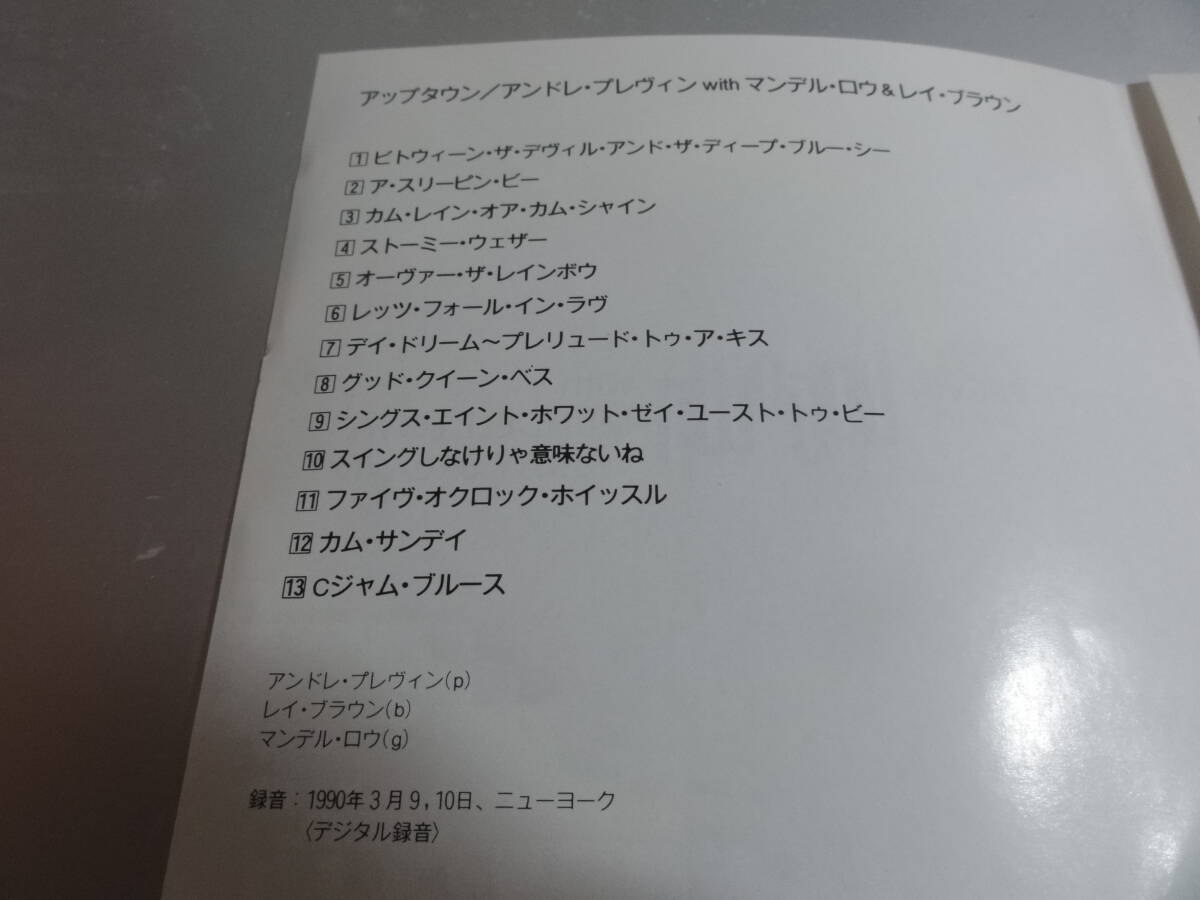 アップタウン／アンドレ・プレヴィン with マンデル・ロウ＆レイ・ブラウン
1 ビトウィーン・ザ・デヴィル・アンド・ザ・ディープ・ブルー・シー
2 ア・スリーピン・ビー
3 カム・レイン・オア・カム・シャイン
4 ストーミー・ウェザー
5 オーヴァー・ザ・レインボウ
6 レッツ・フォール・イン・ラヴ
7 デイ・ドリーム〜プレリュード・トゥ・ア・キス
8 グッド・クイーン・ベス
9 シングス・エイント・ホワット・ゼイ・ユースト・トゥ・ビー
10 スイングしなけりゃ意味ないね
11 ファイヴ・オクロック・ホイッスル
12 カム・サンデイ
13 Cジャム・ブルース
アンドレ・プレヴィン(p)
レイ・ブラウン(b)
マンデル・ロウ(g)
録音：1990年3月9,10日、ニューヨーク
〈デジタル録音〉